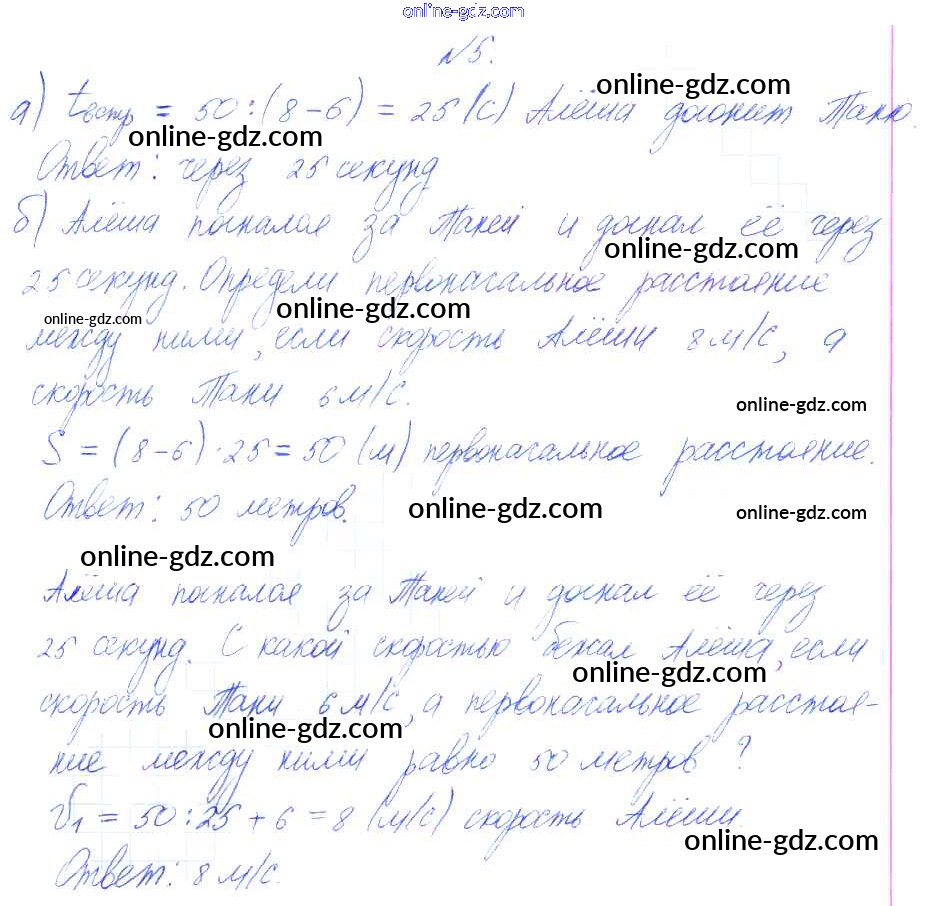 online-gdz.com
№5.
online-gdz.com
а) tвстр = 50:(8-6) = 25 (с) Алёша догонит Таню.
online-gdz.com
Ответ: через 25 секунд
б) Алёша погнался за Таней и догнал её через
online-gdz.com
25 секунд. Определи первоначальное расстояние
online-gdz.com
online-gdz.com
между ними, если скорость Алёши 8 м/с, а
скорость Тани 6 м/с.
online-gdz.com
S = (8-6)·25 = 50 (м) первоначальное расстояние.
Ответ: 50 метров.
online-gdz.com
online-gdz.com
online-gdz.com
Алёша погнался за Таней и догнал её через
25 секунд. С какой скоростью бежал Алёша, если
online-gdz.com
скорость Тани 6 м/с, а первоначальное расстоя-
online-gdz.com
ние между ними равно 50 метров?
V1 = 50:25+6 = 8 (м/с) скорость Алёши.
online-gdz.com
Ответ: 8 м/с.